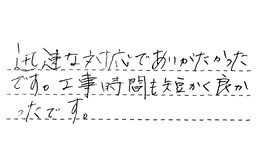 迅速な対応でありがたかった
です。工事時間も短かく良か
ったです。